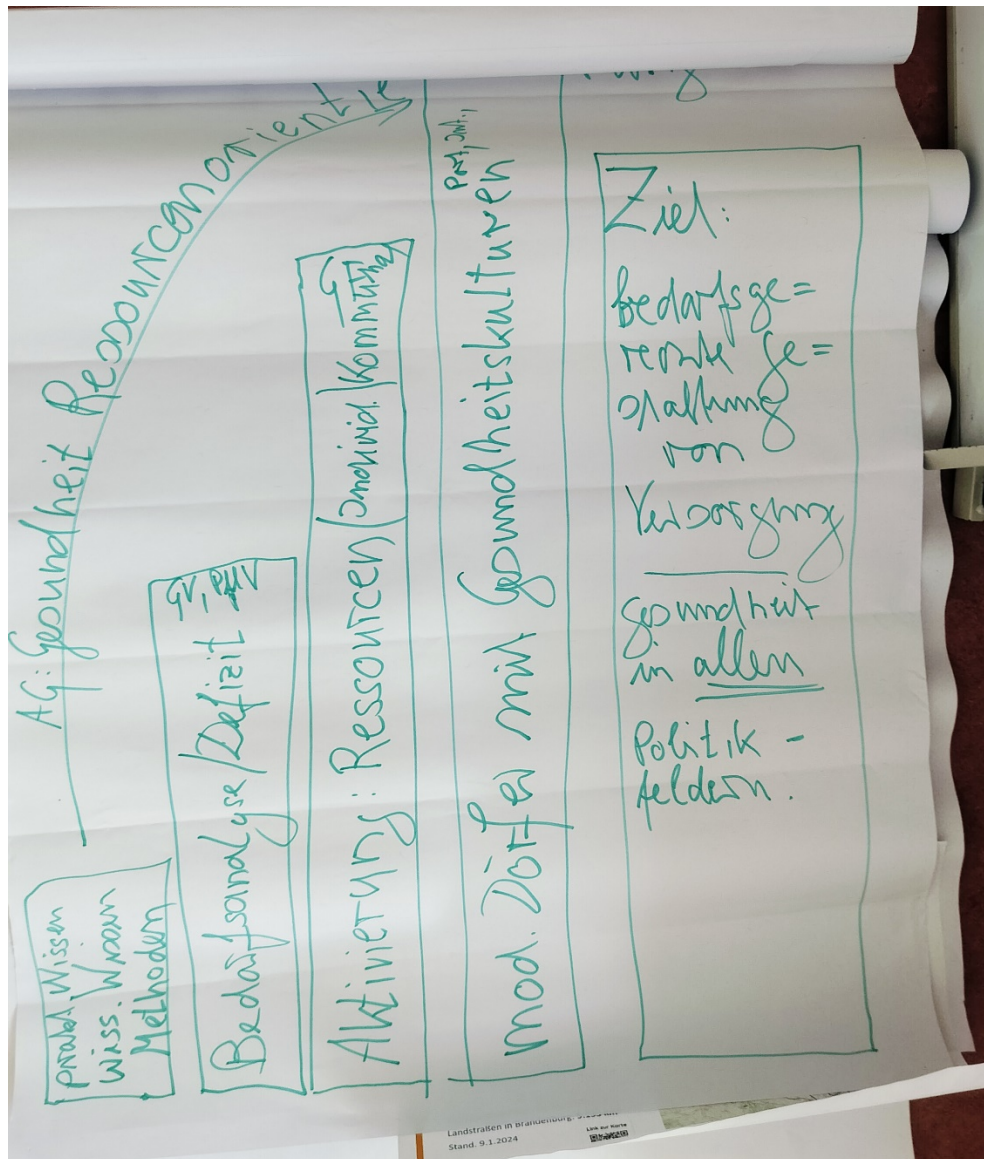 AG: Gesundheit Ressourcenorientie
prakt. Wissen
Wiss. Wissen
Methoden
Bedarfsanalyse/Defizit
Aktivierung: Ressourcen/individ./Kommun
mod. Dörfer mit Gesundheitskulturen
Ziel:
bedarfsge=
rechte Ge=
staltung
von
Versorgung
Gesundheit
in allen
Politik-
feldern.
Landstraßen in Brandenburg:
Link zur Karte
Stand. 9.1.2024